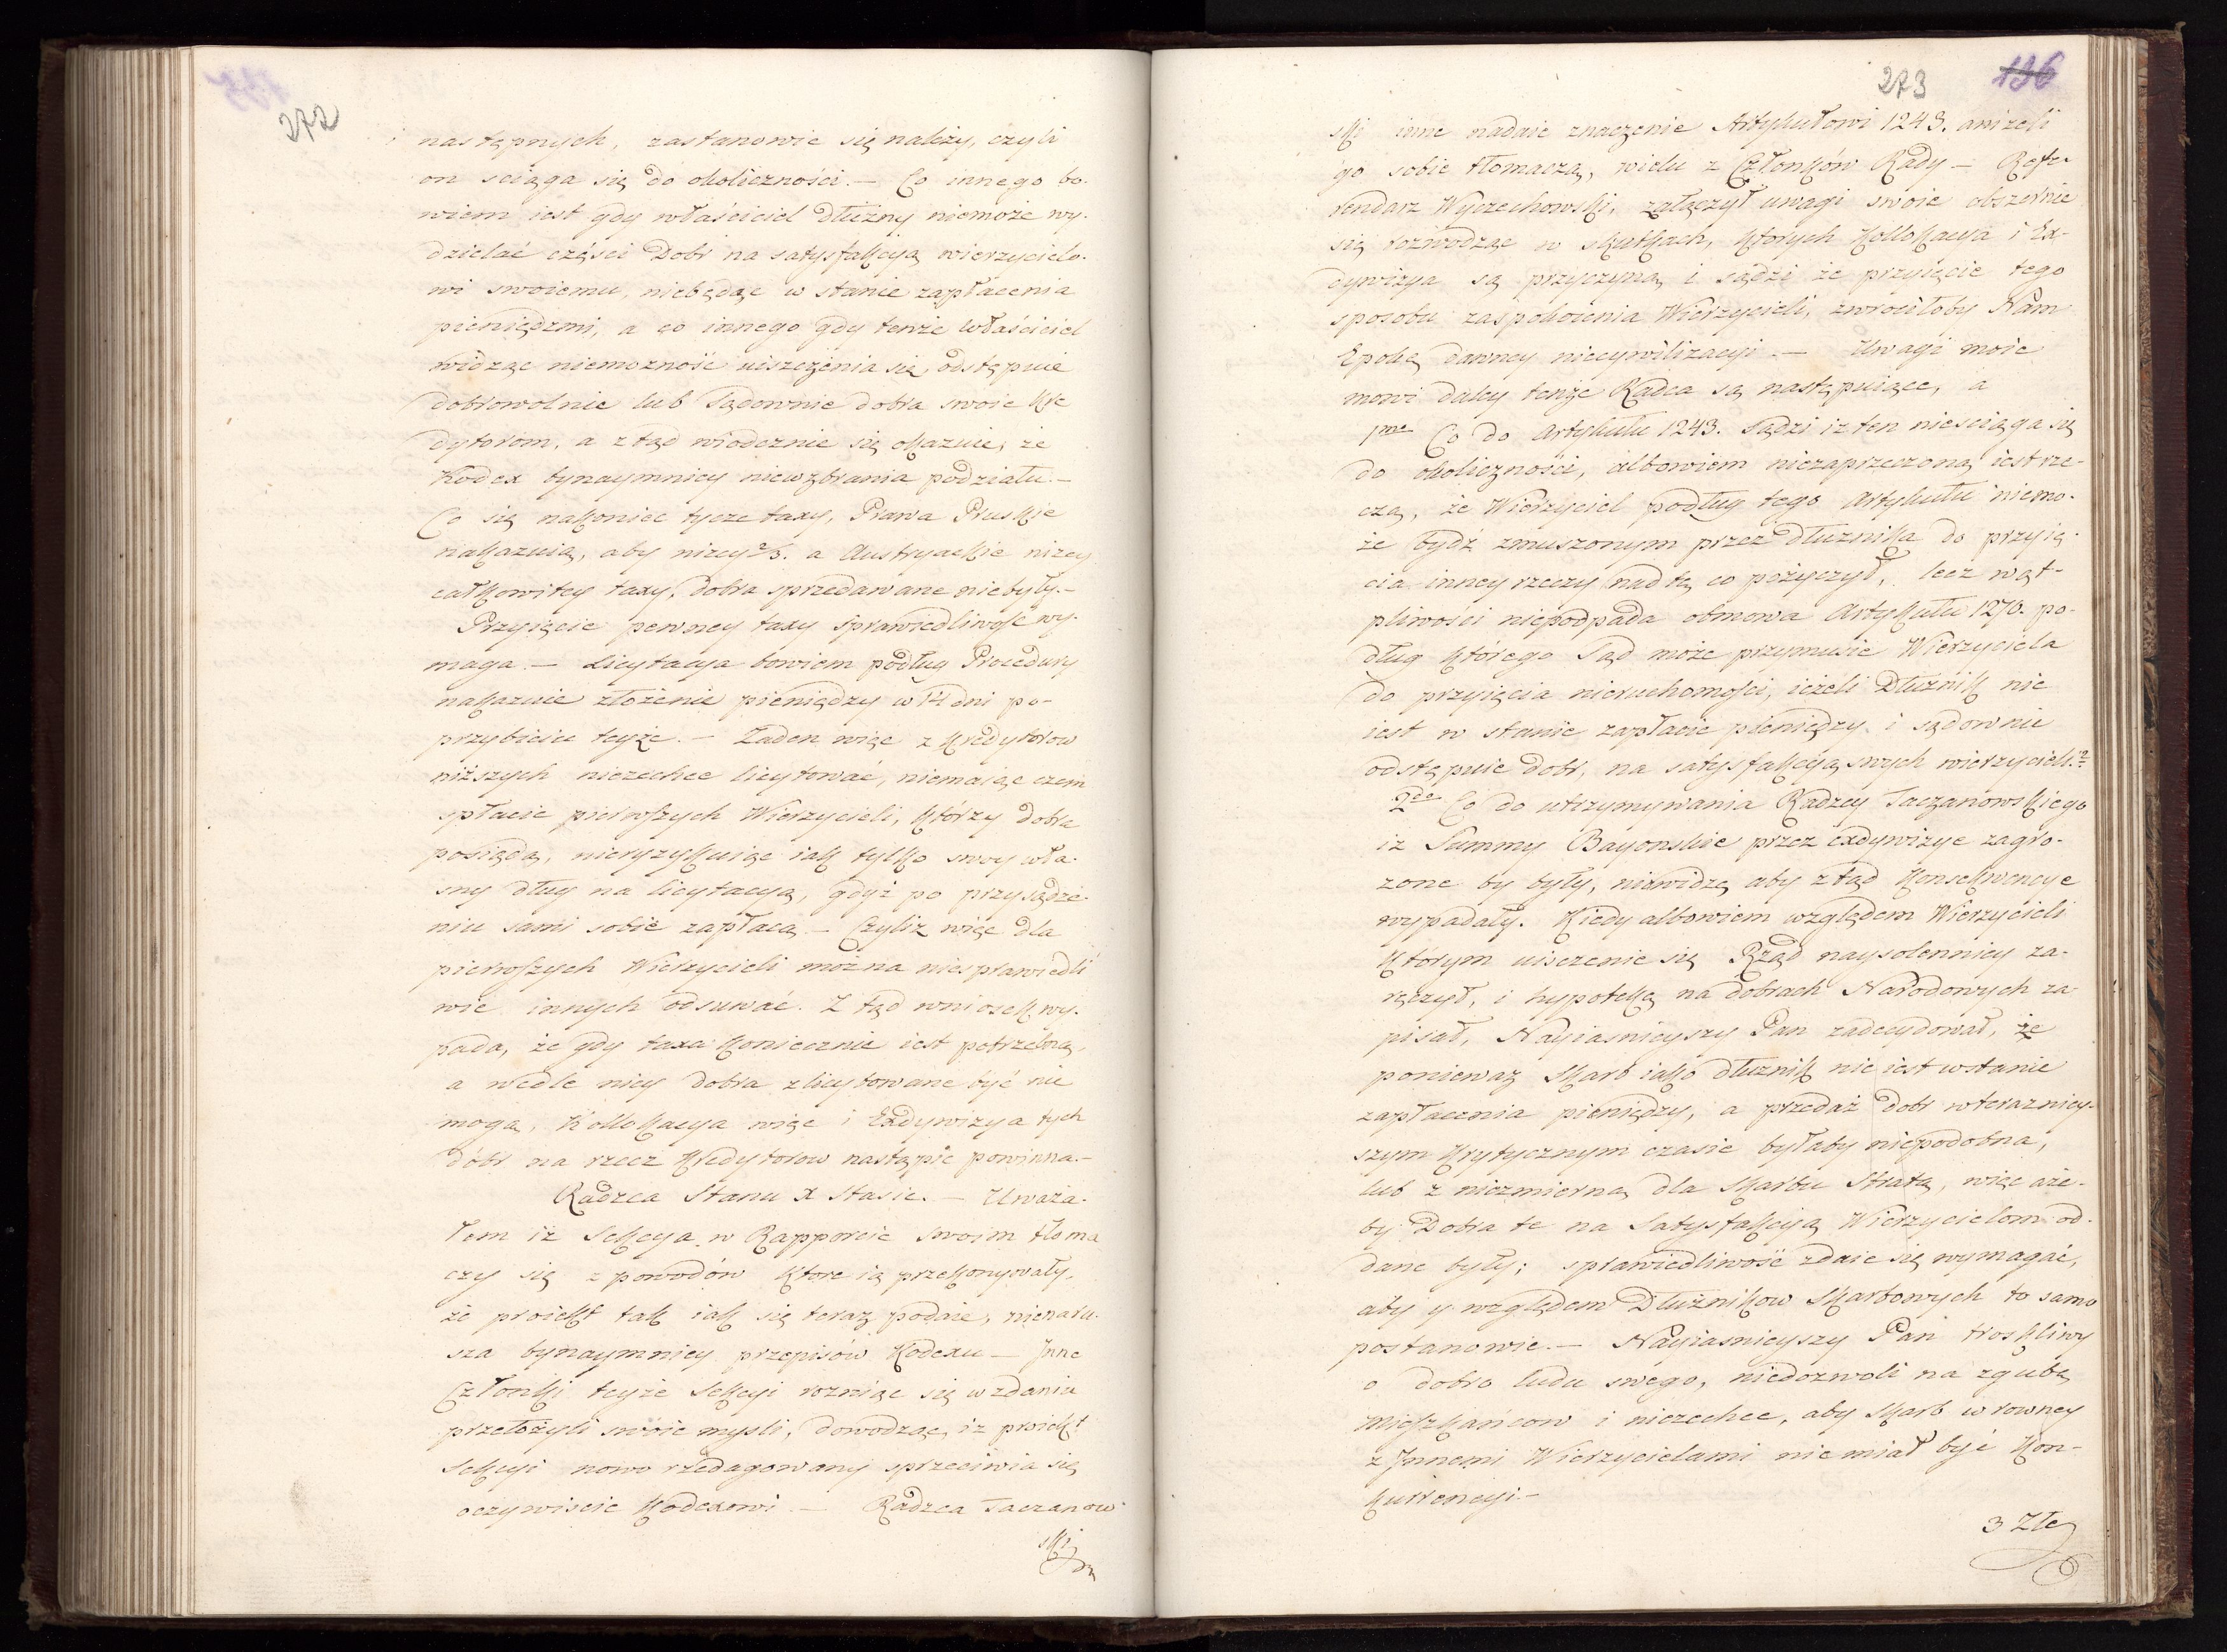 272
następnych, zastanowic się należy, czyli
on sciąga się do okoliczności. — Co innego bo-
wiem iest gdy właściciel Dłużny niemoże wy-
dzielać części Dobr na satysfakcyą wierzycielo-
wi swoiemu, niebędąc w stanie zapłacenia
pieniędzmi, a co innego gdy tenże Właściciel
widząc niemozność uiszczenia się, odstępuie
dobrowolnie lub Sądownie dobra swoie Kre
dytorom, a ztąd widocznie się okazuie, że
Kodex bynaymniey niewzbrania podziału. —
Co się nakoniec tycze taxy, Prawa Pruskie
nakazuią, aby niżey 2/3. a Austryackie nizey
całkowitey taxy, dobra sprzedawane niebyły. —
Przyięcie pewney taxy sprawiedliwość wy-
maga. — Licytacya bowiem podług Procedury
nakazuie złożenie pieniędzy w 14 dni po-
przybiciu teyże. — Żaden więc z Kredytorow
niższych niezechce licytować, niemaiąc czem
spłacic pierwszych Wierzycieli, którzy dobra
posiądą, nieryzykuiąc iak tylko swoy wła-
sny dług na licytacyą, gdyż po przysądze-
niu sami sobie zapłacą. — Czyliż więc dla
pierwszych Wierzycieli można niesprawiedli
wie innych odsuwać. Z tąd wniosek wy-
pada, że gdy taxa koniecznie iest potrzebną,
a wedle niey dobra zlicytowane być nie
mogą, Kollokacya więc i Exdywizya tych
dóbr na rzecz Kredytorow nastąpic powinna. —
Radzca Stanu X Stasic. — Uważa-
łem iż Sekcya w Rapporcie swoim tłoma
czy się z powodów ktore ią przekonywały,
że proiekt tak iak się teraz podaie, nienaru-
sza bynaymniey przepisów Kodexu — Inne
Członki teyże Sekcyi rozniąc się w zdaniu
przełożyli swoie mysli, dowodząc, iż proiekt
Sekcyi nowo rzedagowany sprzeciwia się
oczywiscie Kodexowi. — Radzca Taczanow-
ski
273 136
ski inne nadaie znaczenie Artykułowi 1243. aniżeli
go sobie tłomaczą, wielu z Członków Rady — Refe-
rendarz Wyczechowski, załączył uwagi swoie obszernie
się rozwodząc w skutkach, których Kollokacya i Ex-
dywizya są przyczyną i sądzi że przyięcie tego
sposobu zaspokoienia Wierzycieli, zwrociłoby Nam
Epokę dawney niecywilizacyi. — Uwagi moie
mowi daley tenże Radca są następuiące, a
1mo Co do Artykułu 1243. Sądzi iz ten niesciąga się
do okoliczności, albowiem niezaprzeczoną iest rze-
czą, że Wierzyciel podług tego Artykułu niemo-
że bydź zmuszonym przez Dłużnika do przyię-
cia inney rzeczy nad tę co pożyczył, lecz wąt-
pliwości niepodpada osnowa Artykułu 1270. po-
dług którego Sąd może przymusic Wierzyciela
do przyięcia nieruchomości, ieżeli Dłużnik nie
iest w stanie zapłacic pieniędzy i sądownie
odstępuie dobr, na satysfakcyą swych wierzycieli.
2do Co do utrzymywania Radzcy Taczanowskiego
iz Summy Bayonskie przez exdywizye zagro-
zone by były, niewidzę aby ztąd konsekwencye
wypadały. Kiedy albowiem względem Wierzycieli
którym uiszczenie się Rząd naysolenniey za-
ręczył, i hypotekę na dobrach Narodowych za-
pisał, Nayiasnieyszy Pan zadecydował, że
ponieważ Skarb iako dłużnik nie iest wstanie
zapłacenia pieniędzy, a przedaż Dobr wterazniey-
szym krytycznym czasie byłaby niepodobna,
lub z niezmierną dla Skarbu Stratą, więc aże-
by Dobra te na Satysfakcyą Wierzycielom od-
dane były; sprawiedliwość zdaie się wymagać,
aby y względem Dłużnikow Skarbowych to samo
postanowic. — Nayiasnieyszy Pan troskliwy
o dobro ludu swego, niedozwoli na zgubę
Mieszkańcow i niezechce, aby Skarb w rowney
z Innemi Wierzycielami nie miał być kon-
kurrencyi —
3 Złe